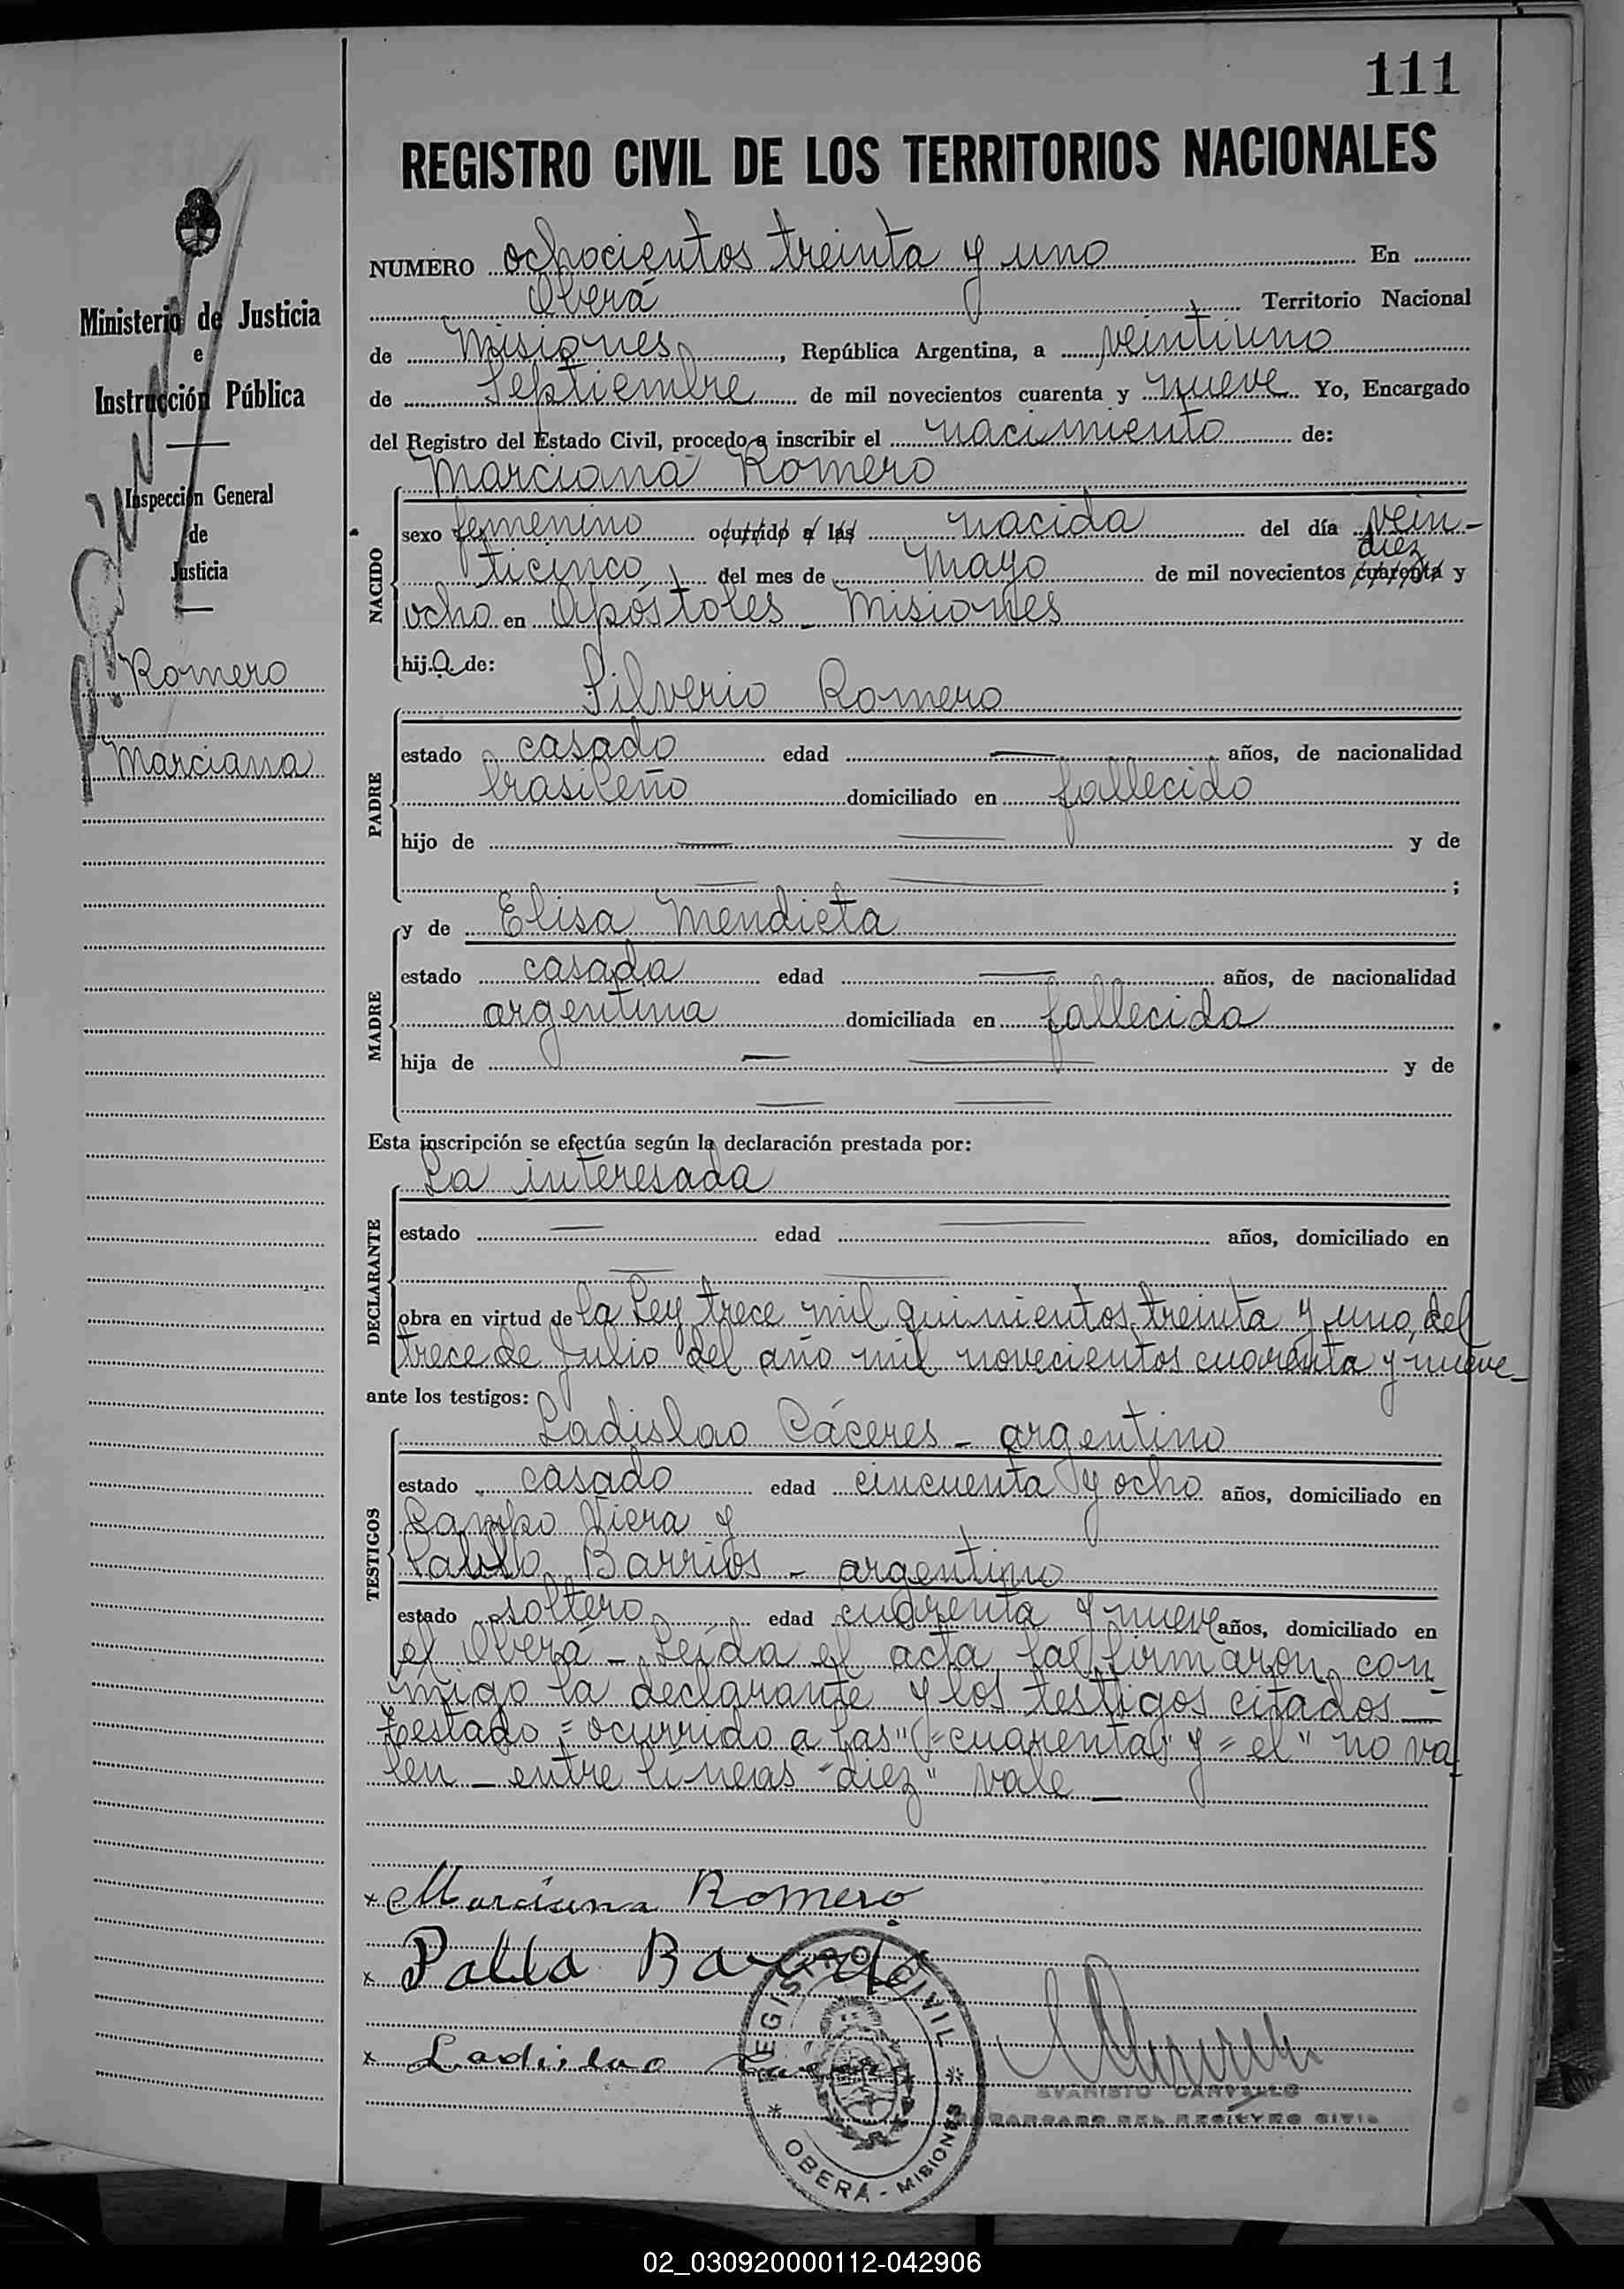 111
REGISTRO CIVIL DE LOS TERRITORIOS NACIONALES
NUMERO ochocientos treinta y uno En
Oberá Territorio Nacional
de Misiones, República Argentina, a veintiuno
de Septiembre de mil novecientos cuarenta y nueve Yo, Encargado
del Registro del Estado Civil, procedo a inscribir el nacimiento de:
Marciana Romero
NACIDO
sexo femenino ocurrido a las nacida del día vein-
diez
ticinco del mes de Mayo de mil novecientos cuarenta y
ocho en Apóstoles - Misiones
hija de:
Silverio Romero
PADRE
estado casado edad — años, de nacionalidad
brasileño domiciliado en fallecido
hijo de — — y de
— — ;
y de Elisa Mendieta
MADRE
estado casada edad — años, de nacionalidad
argentina domiciliada en fallecida
hija de — — y de
— —
Esta inscripción se efectúa según la declaración prestada por:
La interesada
DECLARANTE
estado — edad — años, domiciliado en
— —
obra en virtud de la Ley trece mil quinientos treinta y uno, del
trece de Julio del año mil novecientos cuarenta y nueve-
ante los testigos:
Ladislao Cáceres - argentino
TESTIGOS
estado casado edad cincuenta y ocho años, domiciliado en
Campo Viera y
Pablo Barrios - argentino
estado soltero edad cuarenta y nueve años, domiciliado en
el Oberá - Leída el acta, la firmaron con
migo la declarante y los testigos citados -
Testado = ocurrido a las" = cuarenta" y = el" no va
len - entre líneas "diez" vale -
x Marciana Romero
x Pablo Barrios
x Ladislao
REGISTRO CIVIL
* OBERÁ - MISIONES *
EVARISTO CARVALLO
ENCARGADO DEL REGISTRO CIVIL
Ministerio de Justicia
e
Instrucción Pública
Inspección General
de
Justicia
Romero
Marciana
02_030920000112-042906